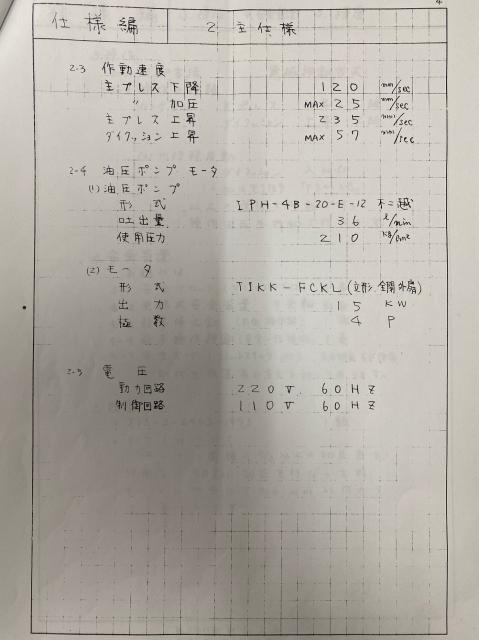 仕様編 2 主仕様
2-3 作動速度
主プレス 下降 120 mm/sec
〃 加圧 MAX 25 mm/sec
主プレス 上昇 235 mm/sec
ダイクッション 上昇 MAX 57 mm/sec
2-4 油圧ポンプ モータ
(1) 油圧ポンプ
形式 IPH-4B-20-E-12 不二越
吐出量 36 ℓ/min
使用圧力 210 kg/cm2
(2) モータ
形式 TIKK-FCKL (立形 全閉外扇)
出力 15 KW
極数 4 P
2-5 電圧
動力回路 220V 60HZ
制御回路 110V 60HZ